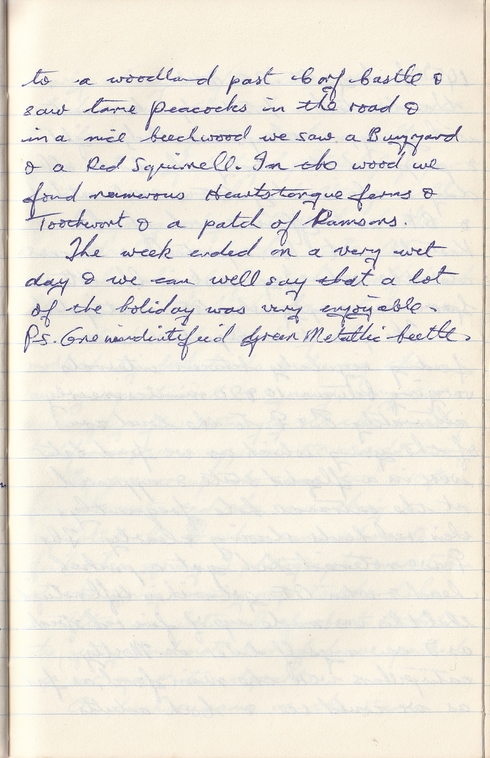 to a woodland past Corf Castle &
saw tame peacocks in the road &
in a nice beechwood we saw a Buzzyard
& a Red Squirrell. In the wood we
fond numerous Heartstongue ferns &
Toothwort & a patch of Ramsons.
The week ended on a very wet
day & we can well say that a lot
of the holiday was very enjoyable.
P.S. One green Metallic beetle.